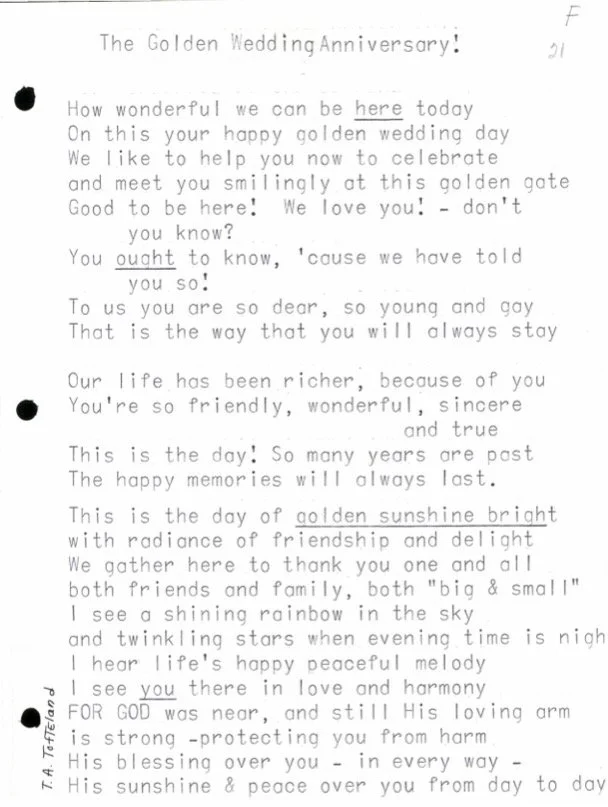 F
21
The Golden Wedding Anniversary!
How wonderful we can be here today
On this your happy golden wedding day
We like to help you now to celebrate
and meet you smilingly at this golden gate
Good to be here! We love you! - don't
you know?
You ought to know, 'cause we have told
you so!
To us you are so dear, so young and gay
That is the way that you will always stay
Our life has been richer, because of you
You're so friendly, wonderful, sincere
and true
This is the day! So many years are past
The happy memories will always last.
This is the day of golden sunshine bright
with radiance of friendship and delight
We gather here to thank you one and all
both friends and family, both "big & small"
I see a shining rainbow in the sky
and twinkling stars when evening time is nigh
I hear life's happy peaceful melody
I see you there in love and harmony
FOR GOD was near, and still His loving arm
is strong -protecting you from harm
His blessing over you - in every way -
His sunshine & peace over you from day to day
T.A. Tofteland